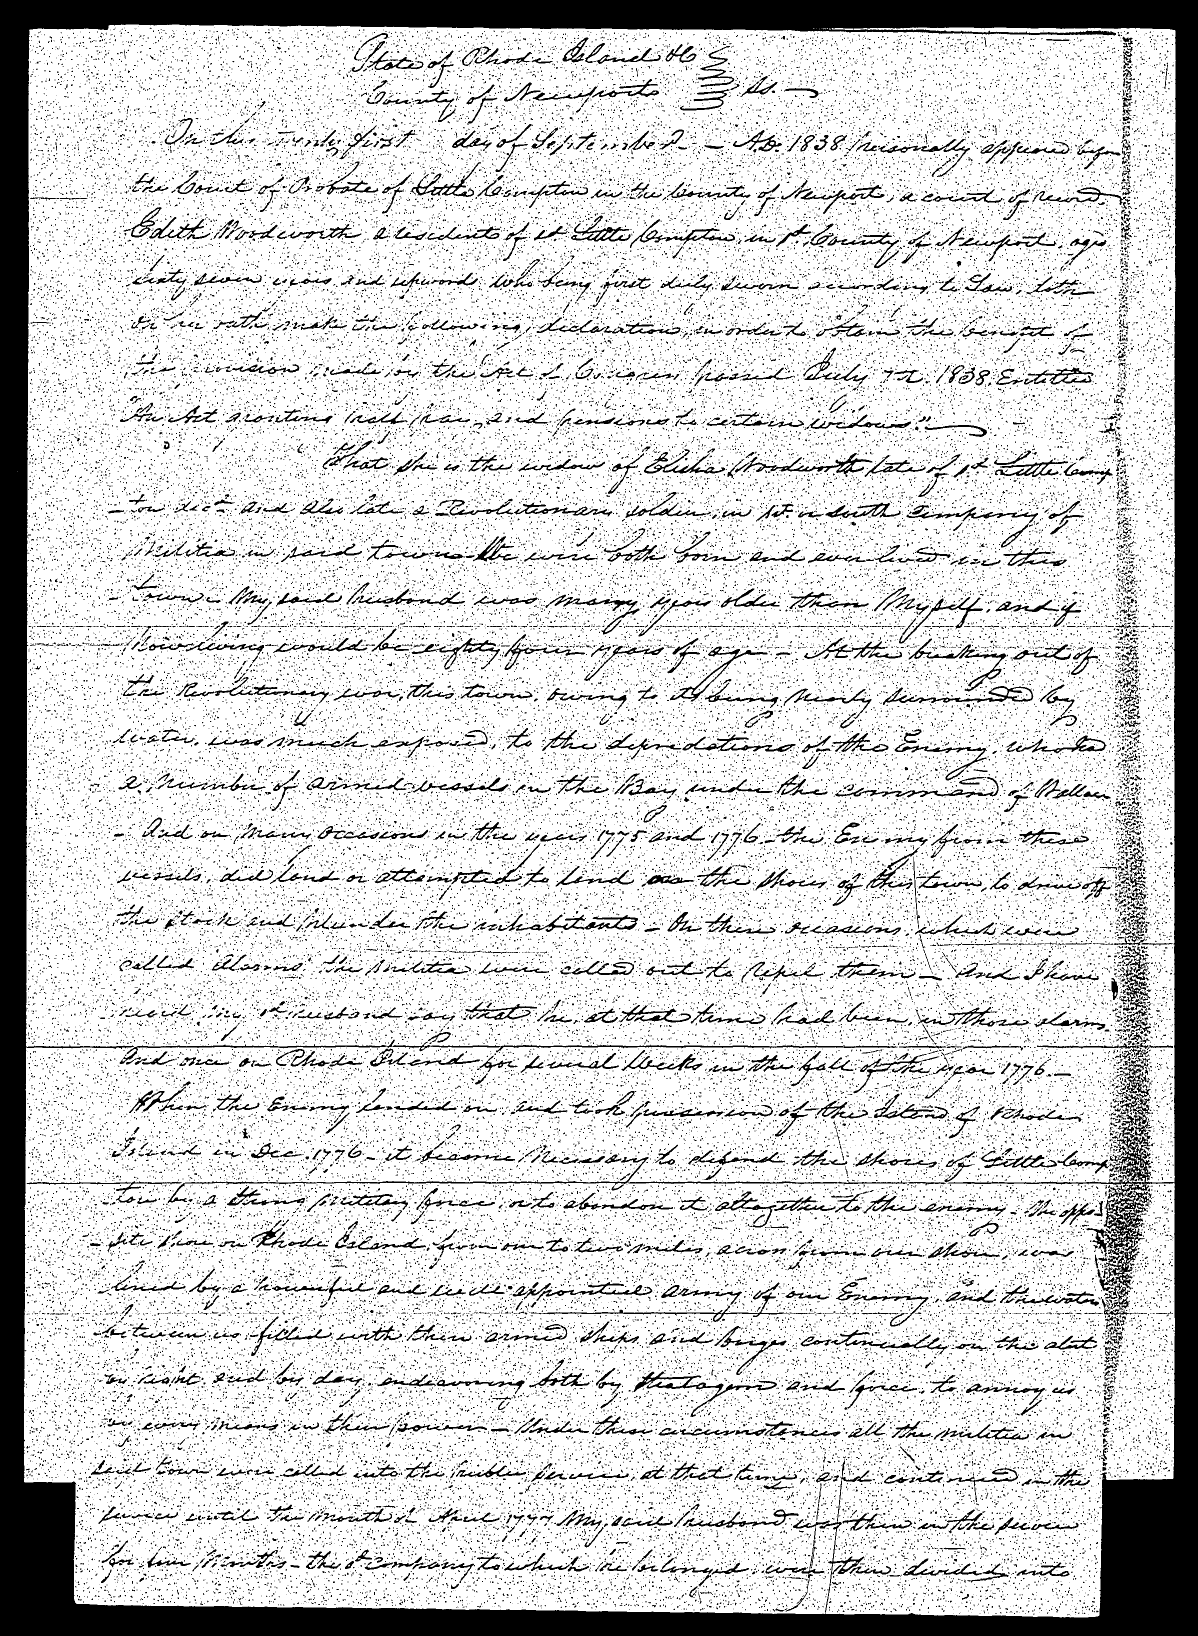 State of Rhode Island &c
County of Newport Ss.
On this twenty first day of September - A.D. 1838 Personally appeared before
the Court of Probate of Little Compton in the County of Newport, a court of record.
Edith Woodworth a resident of sd Little Compton, in sd County of Newport. aged
sixty seven years and upwards who being first duly sworn according to Law, doth
on her oath, make the following declaration, in order to obtain the benefit of
the provision made by the Act of Congress passed July 7th 1838. Entitled
"An Act granting half pay, and pensions to certain widows."
That she is the widow of Elisha Woodworth late of sd Little Comp
-ton decd and also late a Revolutionary soldier, in sd south company of
Militia in said town - We were both born and ever lived in this
-town - My said husband was many years older than Myself. and if
Now living would be eighty four years of age - At the breaking out of
the Revolutionary war, this town, owing to its being Nearly surrounded by
water, was much exposed, to the depredations of the Enemy, who had
a Number of armed vessels in the Bay under the command of Wallace
- And on Many occasions in the years 1775 and 1776 - the Enemy from these
vessels, did land or attempted to land on the shores of this town, to drive off
the stock and plunder the inhabitants - On these occasions, which were
called Alarms the Militia were called out to repel them - And I have
heard my sd husband say that he, at that time had been, in those alarms.
And once on Rhode Island for several Weeks in the fall of the year 1776. -
When the Enemy landed on, and took possession of the Island of Rhode
Island in Dec. 1776 - it became Necessary to defend the shores of Little Comp
-ton by a strong military force, or to abandon it altogether to the enemy - The oppo
-site shore on Rhode Island, from one to two miles, across from our shore, was
lined by a powerful and well appointed army of our Enemy, and the water
between us filled with their armed ships and barges continually on the alert
by night and by day, endeavoring both by stratagem and force, to annoy us
by every means in their power - Under these circumstances all the militia in
said town were called into the public service, at that time, and continued in the
service until the month of April 1777 My said husband was then in the service
for four Months - the sd company to which he belonged, were then divided into